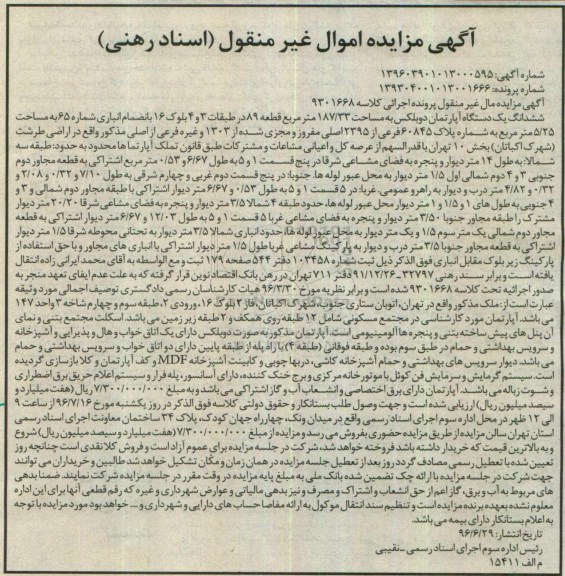 آگهی مزایده اموال غیر منقول (اسناد رهنی)
شماره آگهی: ۱۳۹۶۰۳۹۰۱۰۱۳۰۰۰۵۹۵
شماره پرونده: ۱۳۹۳۰۴۰۰۱۰۱۳۰۰۱۶۶۶
آگهی مزایده مال غیر منقول پرونده اجرائی کلاسه ۹۳۰۱۶۶۸
ششدانگ یک دستگاه آپارتمان دوبلکس به مساحت ۱۸۷/۳۳ متر مربع قطعه ۸۹ در طبقات ۳ و ۴ بلوک ۱۶ بانضمام انباری شماره ۶۵ به مساحت
۵/۲۵ متر مربع به شماره پلاک ۶۰۸۴۵ فرعی از ۲۳۹۵ اصلی مفروز و مجزی شده از ۱۳۰۳ و غیره فرعی از اصلی مذکور واقع در اراضی طرشت
(شهرک اکباتان) بخش ۱۰ تهران با قدرالسهم از عرصه کل و اعیانی مشاعات و مشترکات طبق قانون تملک آپارتمانها محدود به حدود: طبقه سه
شمالا: به طول ۱۴ متر دیوار و پنجره به فضای مشاعی شرقا در پنج قسمت ۱ و ۵ به طول ۶/۶۷ و ۰/۵۳ متر مربع اشتراکی به قطعه مجاور دوم
جنوبی ۳ و ۴ دوم شمالی اول ۱/۵ متر دیوار به محل عبور لوله ها. جنوبا: در پنج قسمت دوم غربی و چهارم شرقی به طول ۷/۱۰ و ۰/۳۲ و ۲/۰۸ و
۰/۳۲ و ۴/۸۲ متر درب و دیوار به راهرو عمومی. غربا: در ۵ قسمت ۱ و ۵ به طول ۰/۵۳ و ۶/۶۷ متر دیوار اشتراکی با طبقه مجاور دوم شمالی و ۳ و
۴ جنوبی به طول های ۱ و ۱/۵ و ۱ متر دیوار محل عبور لوله ها، حدود طبقه ۴ شمالا ۳/۵ متر دیوار و پنجره به فضای مشاعی شرقا ۲۰/۲۰ متر دیوار
مشترک با طبقه مجاور جنوبا ۳/۵۰ متر دیوار و پنجره به فضای مشاعی غربا ۵ قسمت ۱ و ۵ به طول ۱۲/۰۳ و ۶/۶۷ متر دیوار اشتراکی به قطعه
مجاور دوم شمالی یک متر سوم ۱/۵ و یک متر دیوار به محل لوله ها، حدود انباری شمالا ۳/۵ متر دیوار به تحتانی محوطه شرقا ۱/۵ متر دیوار
اشتراکی به قطعه مجاور جنوبا ۳/۵ متر درب و دیوار به پارکینگ مشاعی غربا طول ۱/۵ متر دیوار اشتراکی با انباری های مجاور و با حق استفاده از
پارکینگ زیر بلوک مقابل انباری فوق الذکر ذیل ثبت شماره ۱۰۳۴۵۸ دفتر ۵۴۴ صفحه ۱۷۹ ثبت و مع الواسطه به آقای محمد ایرانی زاده انتقال
یافته است و برابر سند رهنی ۳۲۷۹۷ـ۹۱/۱۲/۲۶ دفتر ۷۱۱ تهران در رهن بانک اقتصاد نوین قرار گرفته که به علت عدم ایفای تعهد منجر به
صدور اجرائیه تحت کلاسه ۹۳۰۱۶۶۸ شده است و برابر نظریه مورخ ۹۶/۳/۳۰ هیات کارشناسان رسمی دادگستری توصیف اجمالی مورد وثیقه
عبارت است از: ملک مذکور واقع در تهران، اتوبان ستاری جنوب، شهرک اکباتان، فاز ۲ بلوک ۱۶، ورودی ۲، طبقه سوم و چهارم شاخه ۳ واحد ۱۴۷
می باشد. آپارتمان مورد کارشناسی در مجتمع مسکونی شامل ۱۲ طبقه روی همکف و ۲ طبقه زیر زمین می باشد. اسکلت مجتمع بتنی و نمای
آن پنل های پیش ساخته بتنی و پنجره ها آلومینیومی است. آپارتمان مذکور به صورت دوبلکس دارای یک اتاق خواب و هال و پذیرایی و آشپزخانه
و سرویس بهداشتی و حمام در طبقه سوم بوده و طبقه فوقانی (طبقه ۴) با راه پله از طبقه پایین دارای دو اتاق خواب و سرویس بهداشتی و حمام
می باشد. دیوار سرویس های بهداشتی و حمام آشپزخانه کاشی، دربها چوبی و کابینت آشپزخانه MDF و کف آپارتمان و کلا بازسازی گردیده
است. سیستم گرمایش و سرمایش فن کوئل با موتورخانه مرکزی و برج خنک کننده، دارای آسانسور، پله فرار و سیستم اعلام حریق برق اضطراری
و شوت زباله می باشد. آپارتمان دارای برق اختصاصی و انشعاب آب و گاز اشتراکی می باشد و به مبلغ ۷/۳۰۰/۰۰۰/۰۰۰ ریال (هفت میلیارد و
سیصد میلیون ریال) ارزیابی شده است و جهت وصول طلب بستانکار و حقوق دولتی کلاسه فوق الذکر در روز یکشنبه مورخ ۹۶/۷/۱۶ از ساعت ۹
الی ۱۲ ظهر در محل اداره سوم اجرای اسناد رسمی واقع در میدان ونک، چهارراه جهان کودک، پلاک ۳۴ ساختمان معاونت اجرای اسناد رسمی
استان تهران سالن مزایده از طریق مزایده حضوری بفروش می رسد و مزایده از مبلغ ۷/۳۰۰/۰۰۰/۰۰۰ (هفت میلیارد و سیصد میلیون ریال) شروع
و به بالاترین قیمت که خریدار داشته باشد فروخته خواهد شد، شرکت در جلسه مزایده برای عموم آزاد است و فروش کلا نقدی است چنانچه روز
تعیین شده با تعطیل رسمی مصادف گردد روز بعد از تعطیل جلسه مزایده در همان زمان و مکان تشکیل خواهد شد طالبین و خریداران می توانند
جهت شرکت در جلسه مزایده با ارائه چک تضمین شده بانک ملی به مبلغ پایه مزایده در وقت مقرر در جلسه مزایده شرکت نمایند. ضمنا بدهی
های مربوط به آب و برق، گاز اعم از حق انشعاب و اشتراک و مصرف و نیز بدهی مالیاتی و عوارض شهرداری و غیره که رقم قطعی آنها برای این اداره
معلوم نشده بعهده برنده مزایده است و تنظیم سند انتقال موکول به ارائه مفاصا حساب های دارایی و شهرداری و... خواهد بود مورد مزایده با توجه
به اعلام بستانکار دارای بیمه می باشد.
تاریخ انتشار: ۹۶/۶/۲۹
رئیس اداره سوم اجرای اسناد رسمی ـ نقیبی
م الف ۱۵۴۱۱